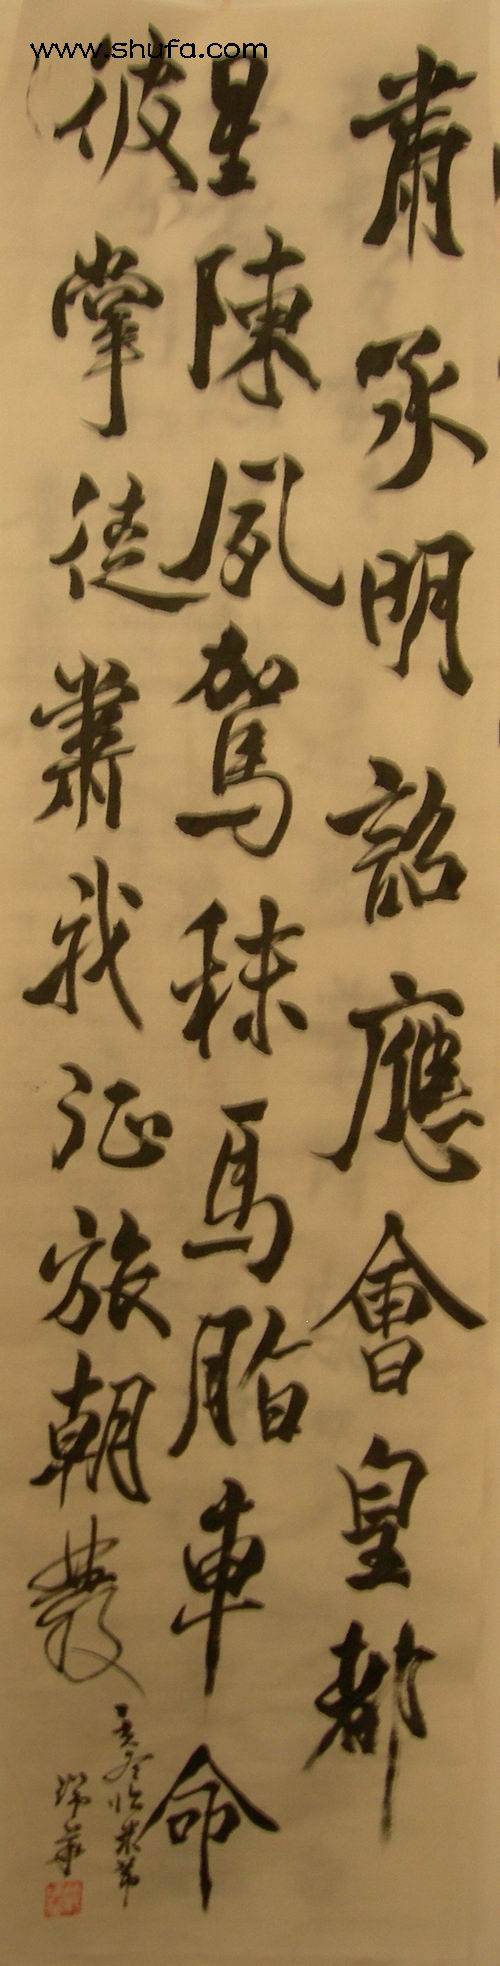 www.shufa.com
肅承明詔應會皇都
星陳夙駕秣馬脂車命
彼掌徒肅我征旅朝發
冬臨米芾
瑞華